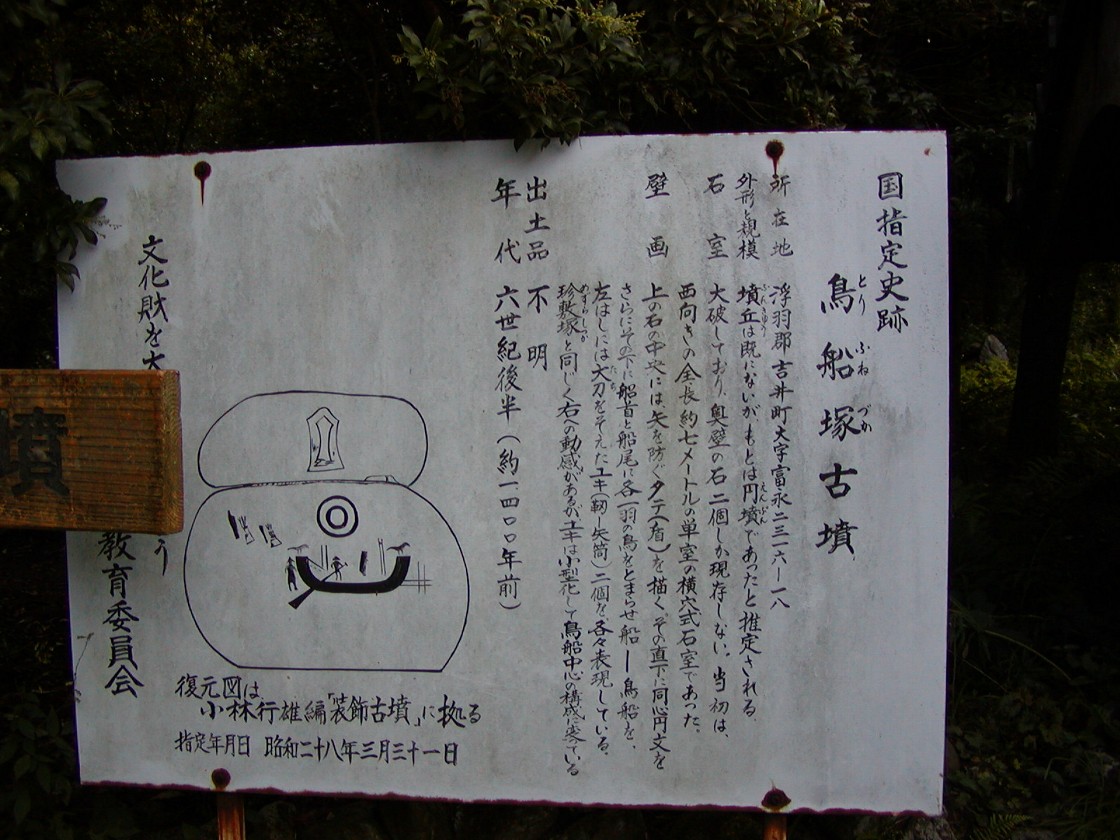 国指定史跡
鳥船塚古墳
とり ふね づか
所在地 浮羽郡吉井町大字富永二三一六ー一八
外形と規模 墳丘は既にないが、もとは円墳であったと推定される。
ふんきゅう えんぷん
石室 大破しており、奥壁の石二個しか現存しない。当初は、
西向きの全長約七メートルの単室の横穴式石室であった。
壁画 上の石の中央には、矢を防ぐタテ(盾)を描く。その直下に同心円文を
さらにその下に船首と船尾に各一羽の鳥をとまらせ船ー鳥船を、
左はしには大刀をそえたユキ(靭ー矢筒)二個を、各々表現している。
たち
珍敷塚と同じく右への動感があるが、ユキは小型化して鳥船中心の構成に変ている
めずらしづか
出土品 不明
年代 六世紀後半(約一四〇〇年前)
文化財を大
う
教育委員会
復元図は
小林行雄編「装飾古墳」に拠る
指定年月日 昭和二十八年三月三十一日
墳